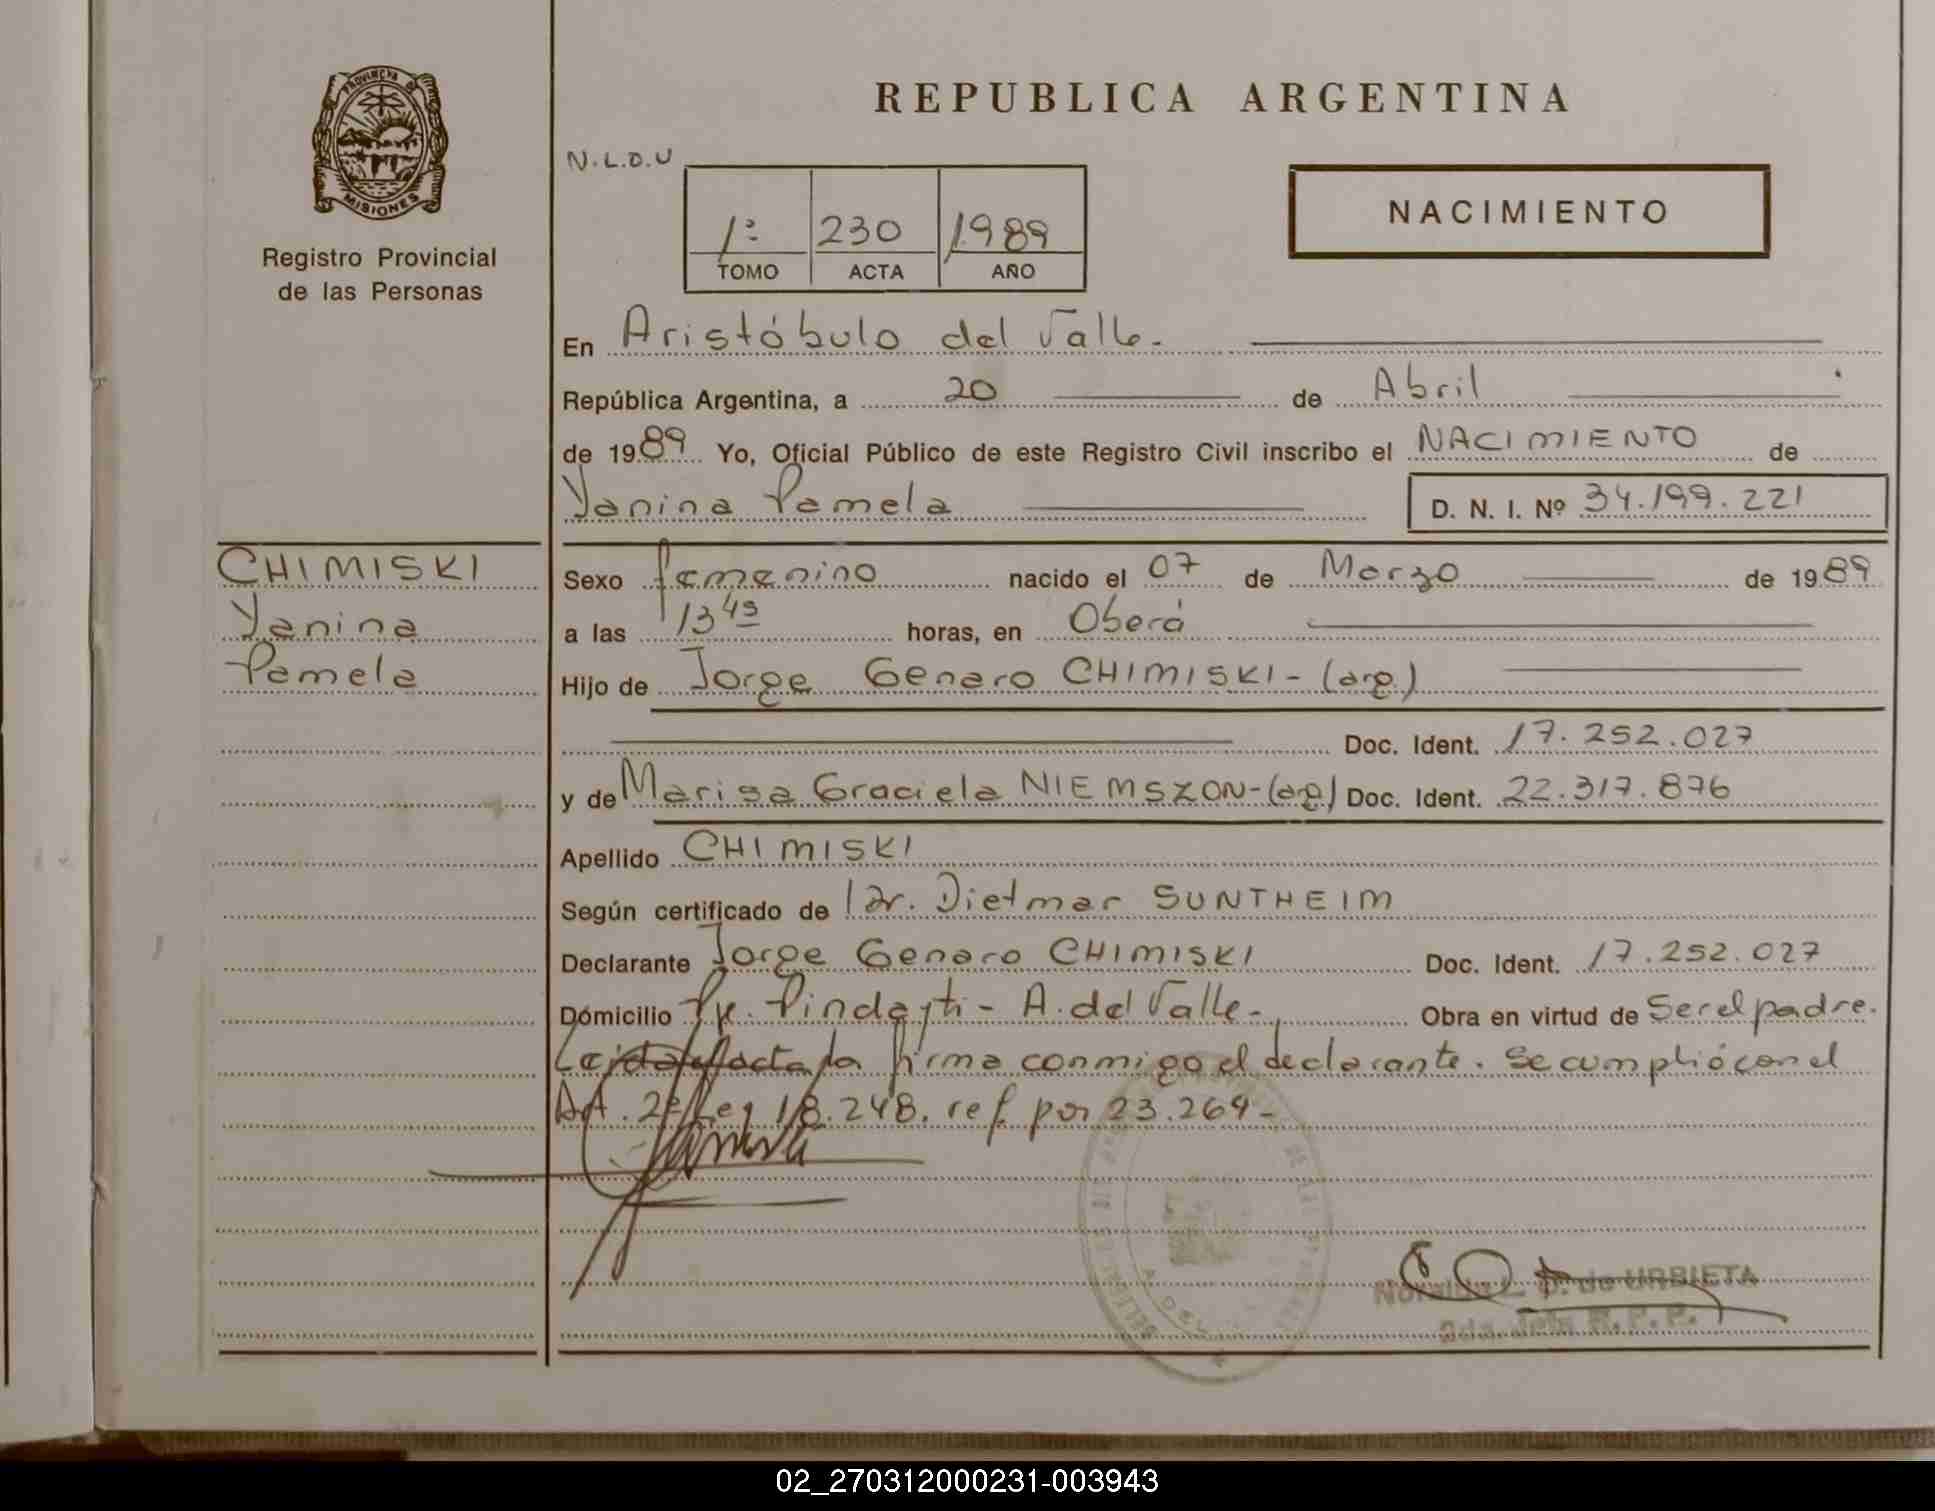 PROVINCIA
MISIONES
Registro Provincial
de las Personas
REPUBLICA ARGENTINA
N.L.D.U
1º 230 1989
TOMO ACTA AÑO
NACIMIENTO
En Aristóbulo del Valle.
República Argentina, a 20 de Abril
de 1989 Yo, Oficial Público de este Registro Civil inscribo el NACIMIENTO de
Yanina Pamela D. N. I. Nº 34.199.221
CHIMISKI
Yanina
Pamela
Sexo femenino nacido el 07 de Marzo de 1989
a las 13 45 horas, en Oberá
Hijo de Jorge Genaro CHIMISKI- (arg.)
Doc. Ident. 17.252.027
y de Marisa Graciela NIEMSZON-(arg) Doc. Ident. 22.317.876
Apellido CHIMISKI
Según certificado de Dr. Dietmar SUNTHEIM
Declarante Jorge Genaro CHIMISKI Doc. Ident. 17.252.027
Domicilio Pje. Pindayti - A. del Valle- Obra en virtud de Ser el padre.
Leída el acta la firma conmigo el declarante. Se cumplió con el
Art. 2º Ley 18.248. ref. por 23.264-
L. D. de URBIETA
R. P. P.
02_270312000231-003943